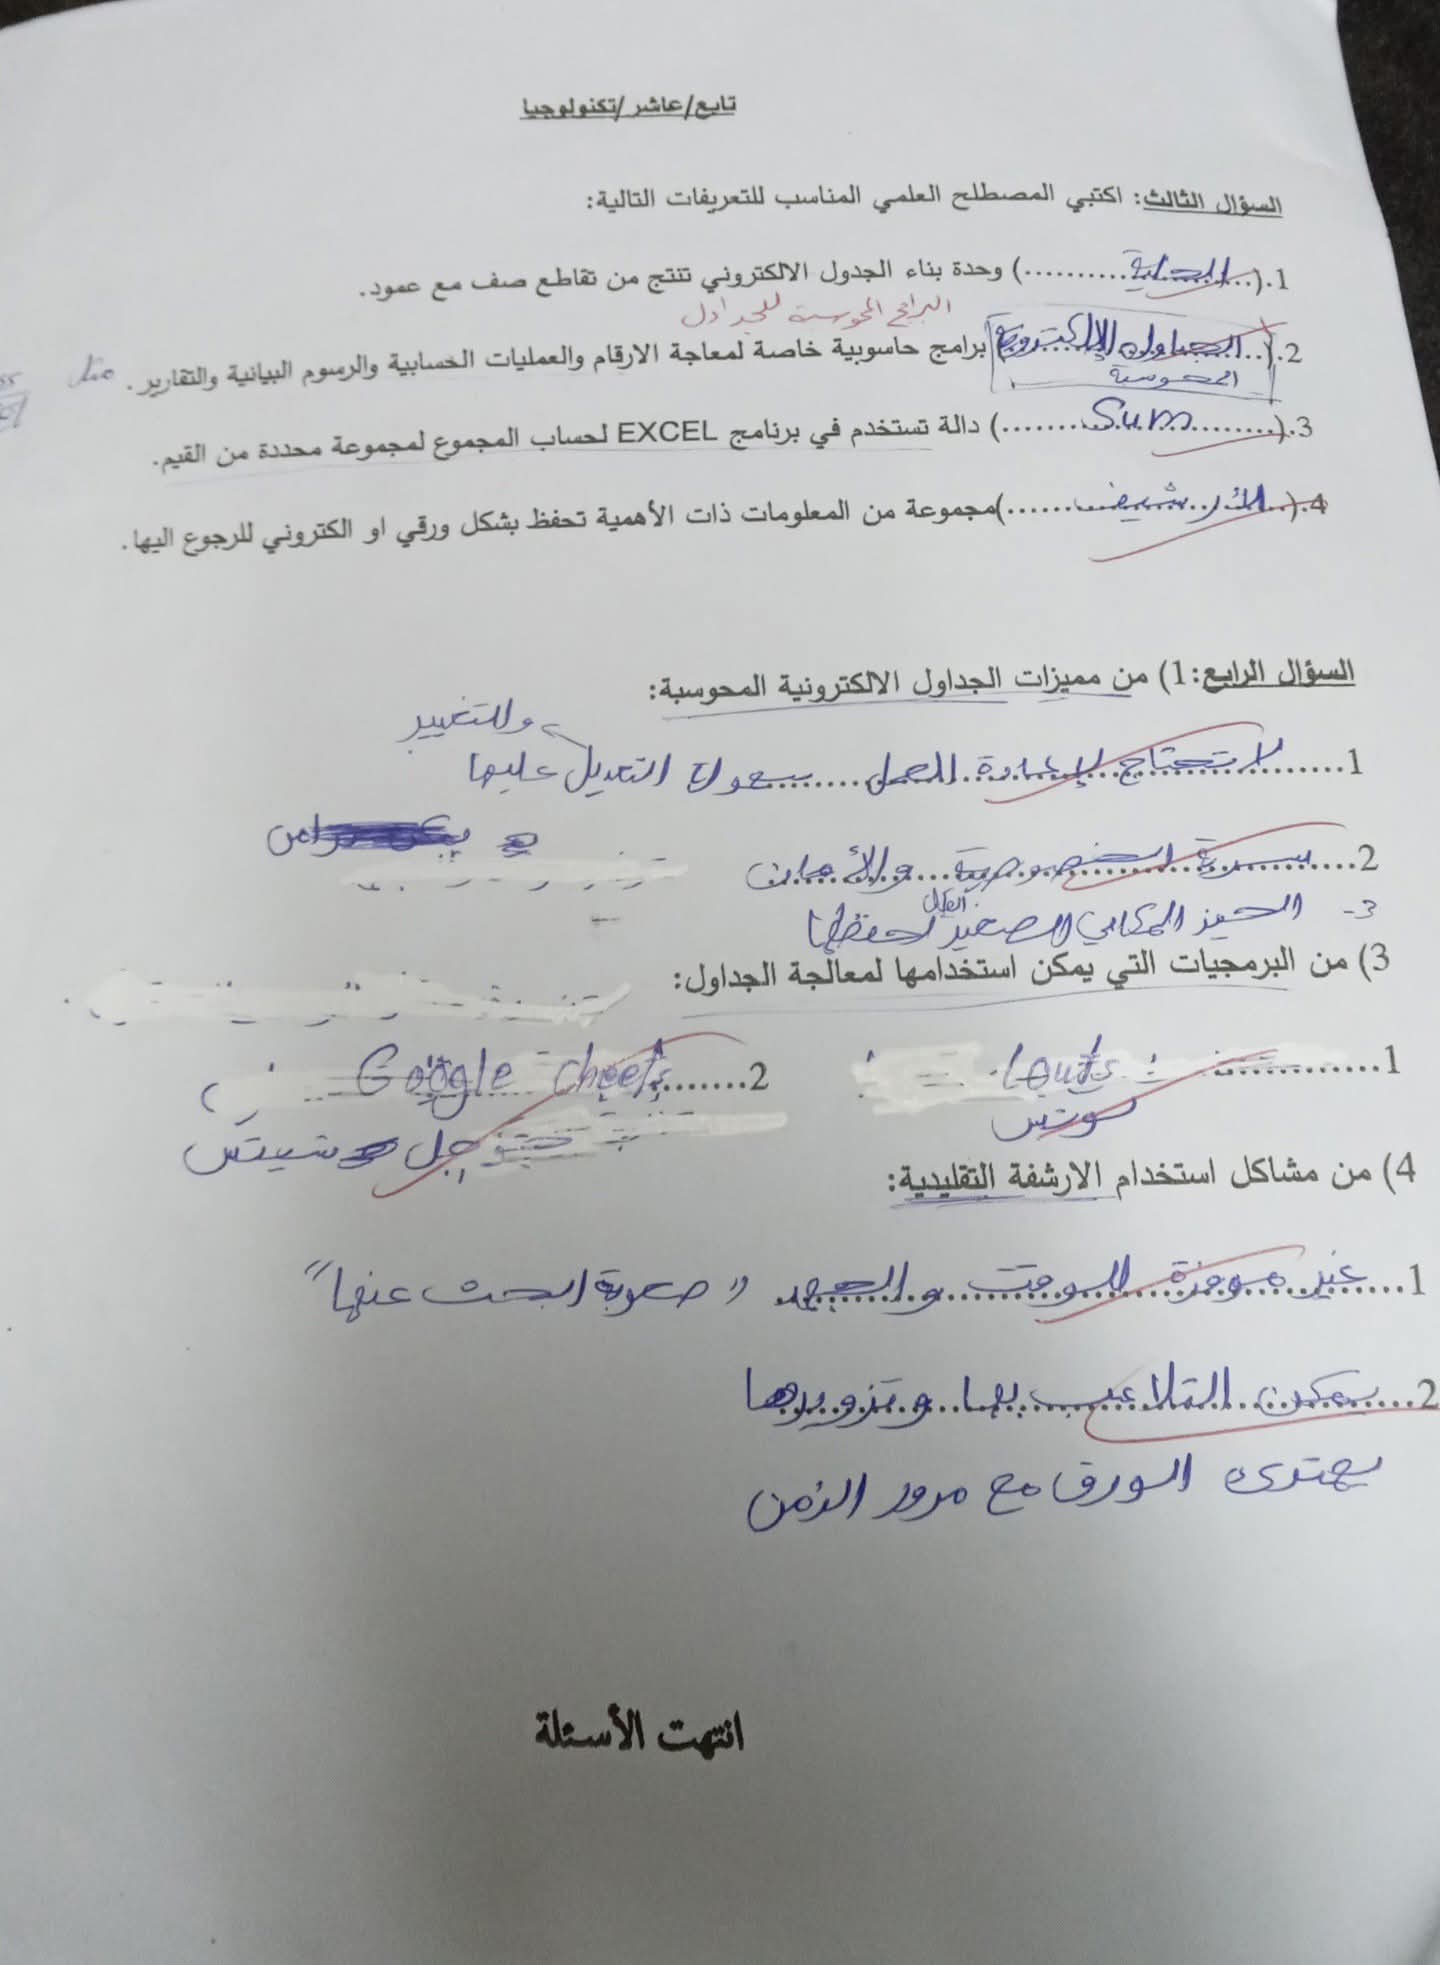 تابع/عاشر/تكنولوجيا
السؤال الثالث: اكتبي المصطلح العلمي المناسب للتعريفات التالية:
1.(...الخلية..........) وحدة بناء الجدول الالكتروني تنتج من تقاطع صف مع عمود.
البرامج المحوسبة للجداول
2.(..الجداول الإلكترونية) برامج حاسوبية خاصة لمعاجة الارقام والعمليات الحسابية والرسوم البيانية والتقارير.
المحوسبة
3.(.........Sum........) دالة تستخدم في برنامج EXCEL لحساب المجموع لمجموعة محددة من القيم.
4.(...الأرشيف......)مجموعة من المعلومات ذات الأهمية تحفظ بشكل ورقي او الكتروني للرجوع اليها.
السؤال الرابع:1) من مميزات الجداول الالكترونية المحوسبة:
وللتغيير
1.....لا تحتاج لإعادة العمل..... سهولة التعديل عليها
2.....سرية الخصوصية والأمان
3- الحيز المكاني الصغير لحفظها
3) من البرمجيات التي يمكن استخدامها لمعالجة الجداول:
1............ Louts
2....... Google cheets
لوتس
جوجل شيتس
4) من مشاكل استخدام الارشفة التقليدية:
1....غير موفرة للوقت والجهد "صعوبة البحث عنها"
2....يمكن التلاعب بها وتزويرها
يهترئ الورق مع مرور الزمن
انتهت الأسئلة